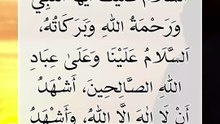 السَّلَامُ عَلَيْكَ أَيُّهَا النَّبِيُّ
وَرَحْمَةُ اللهِ وَبَرَكَاتُهُ،
اَلسَّلَامُ عَلَيْنَا وَعَلَىٰ عِبَادِ
اللهِ الصَّالِحِينَ، أَشْهَدُ
أَنْ لَا إِلٰهَ إِلَّا اللهُ، وَأَشْهَدُ